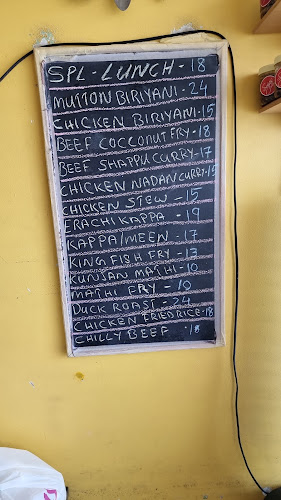 SPL - LUNCH - 18
MUTTON BIRIYANI - 24
CHICKEN BIRIYANI - 15
BEEF COCCONUT FRY - 18
BEEF SHAPPU CURRY - 17
CHICKEN NADAN CURRY - 15
CHICKEN STEW - 15
ERACHI KAPPA - 19
KAPPA/MEEN - 17
KING FISH FRY - 17
KUNJAN MATHI - 10
MATHI FRY - 10
DUCK ROAST - 24
CHICKEN FRIED RICE - 18
CHILLY BEEF - 18